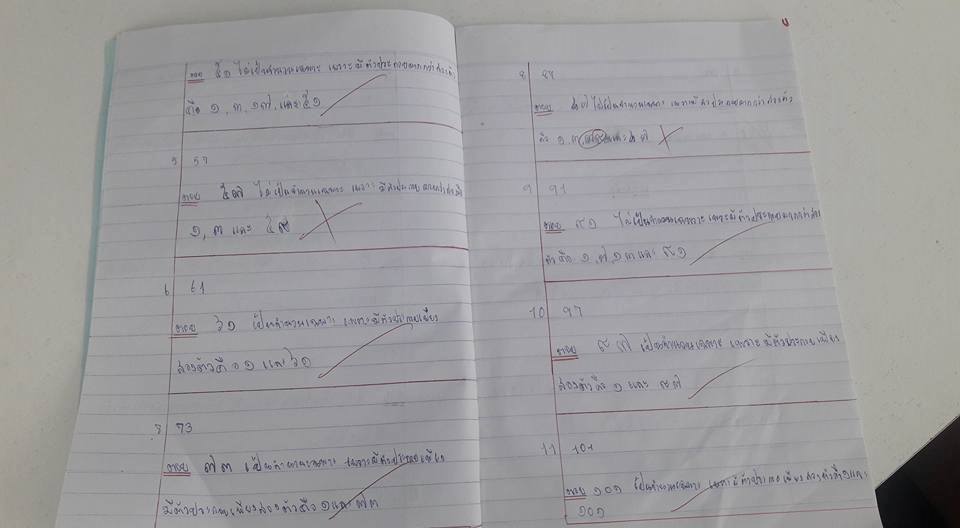 ตอบ ๕๑ ไม่เป็นจำนวนเฉพาะ เพราะมีตัวประกอบมากกว่าสองตัว
คือ ๑, ๓, ๑๗, และ ๕๑
5 57
ตอบ ๕๗ ไม่เป็นจำนวนเฉพาะ เพราะ มีตัวประกอบ มากกว่าสองตัว
๑, ๓ และ
6 61
ตอบ ๖๑ เป็นจำนวนเฉพาะ เพราะมีตัวประกอบเพียง
สองตัวคือ ๑ และ ๖๑
7 73
ตอบ ๗๓ เป็นจำนวนเฉพาะ เพราะมีตัวประกอบเพียง
มีตัวประกอบเพียงสองตัวคือ ๑ และ ๗๓
8
ตอบ ไม่เป็นจำนวนเฉพาะ เพราะมีตัวประกอบมากกว่าสองตัว
คือ ๑, ๓,
9 91
ตอบ ๙๑ ไม่เป็นจำนวนเฉพาะ เพราะมีตัวประกอบมากกว่าสอง
ตัวคือ ๑, ๗, ๑๓ และ ๙๑
10 97
ตอบ ๙๗ เป็นจำนวนเฉพาะ เพราะ มีตัวประกอบ เพียง
สองตัวคือ ๑ และ ๙๗
11 101
ตอบ ๑๐๑ เป็นจำนวนเฉพาะ เพราะมีตัวประกอบ เพียงสองตัวคือ ๑ และ
๑๐๑